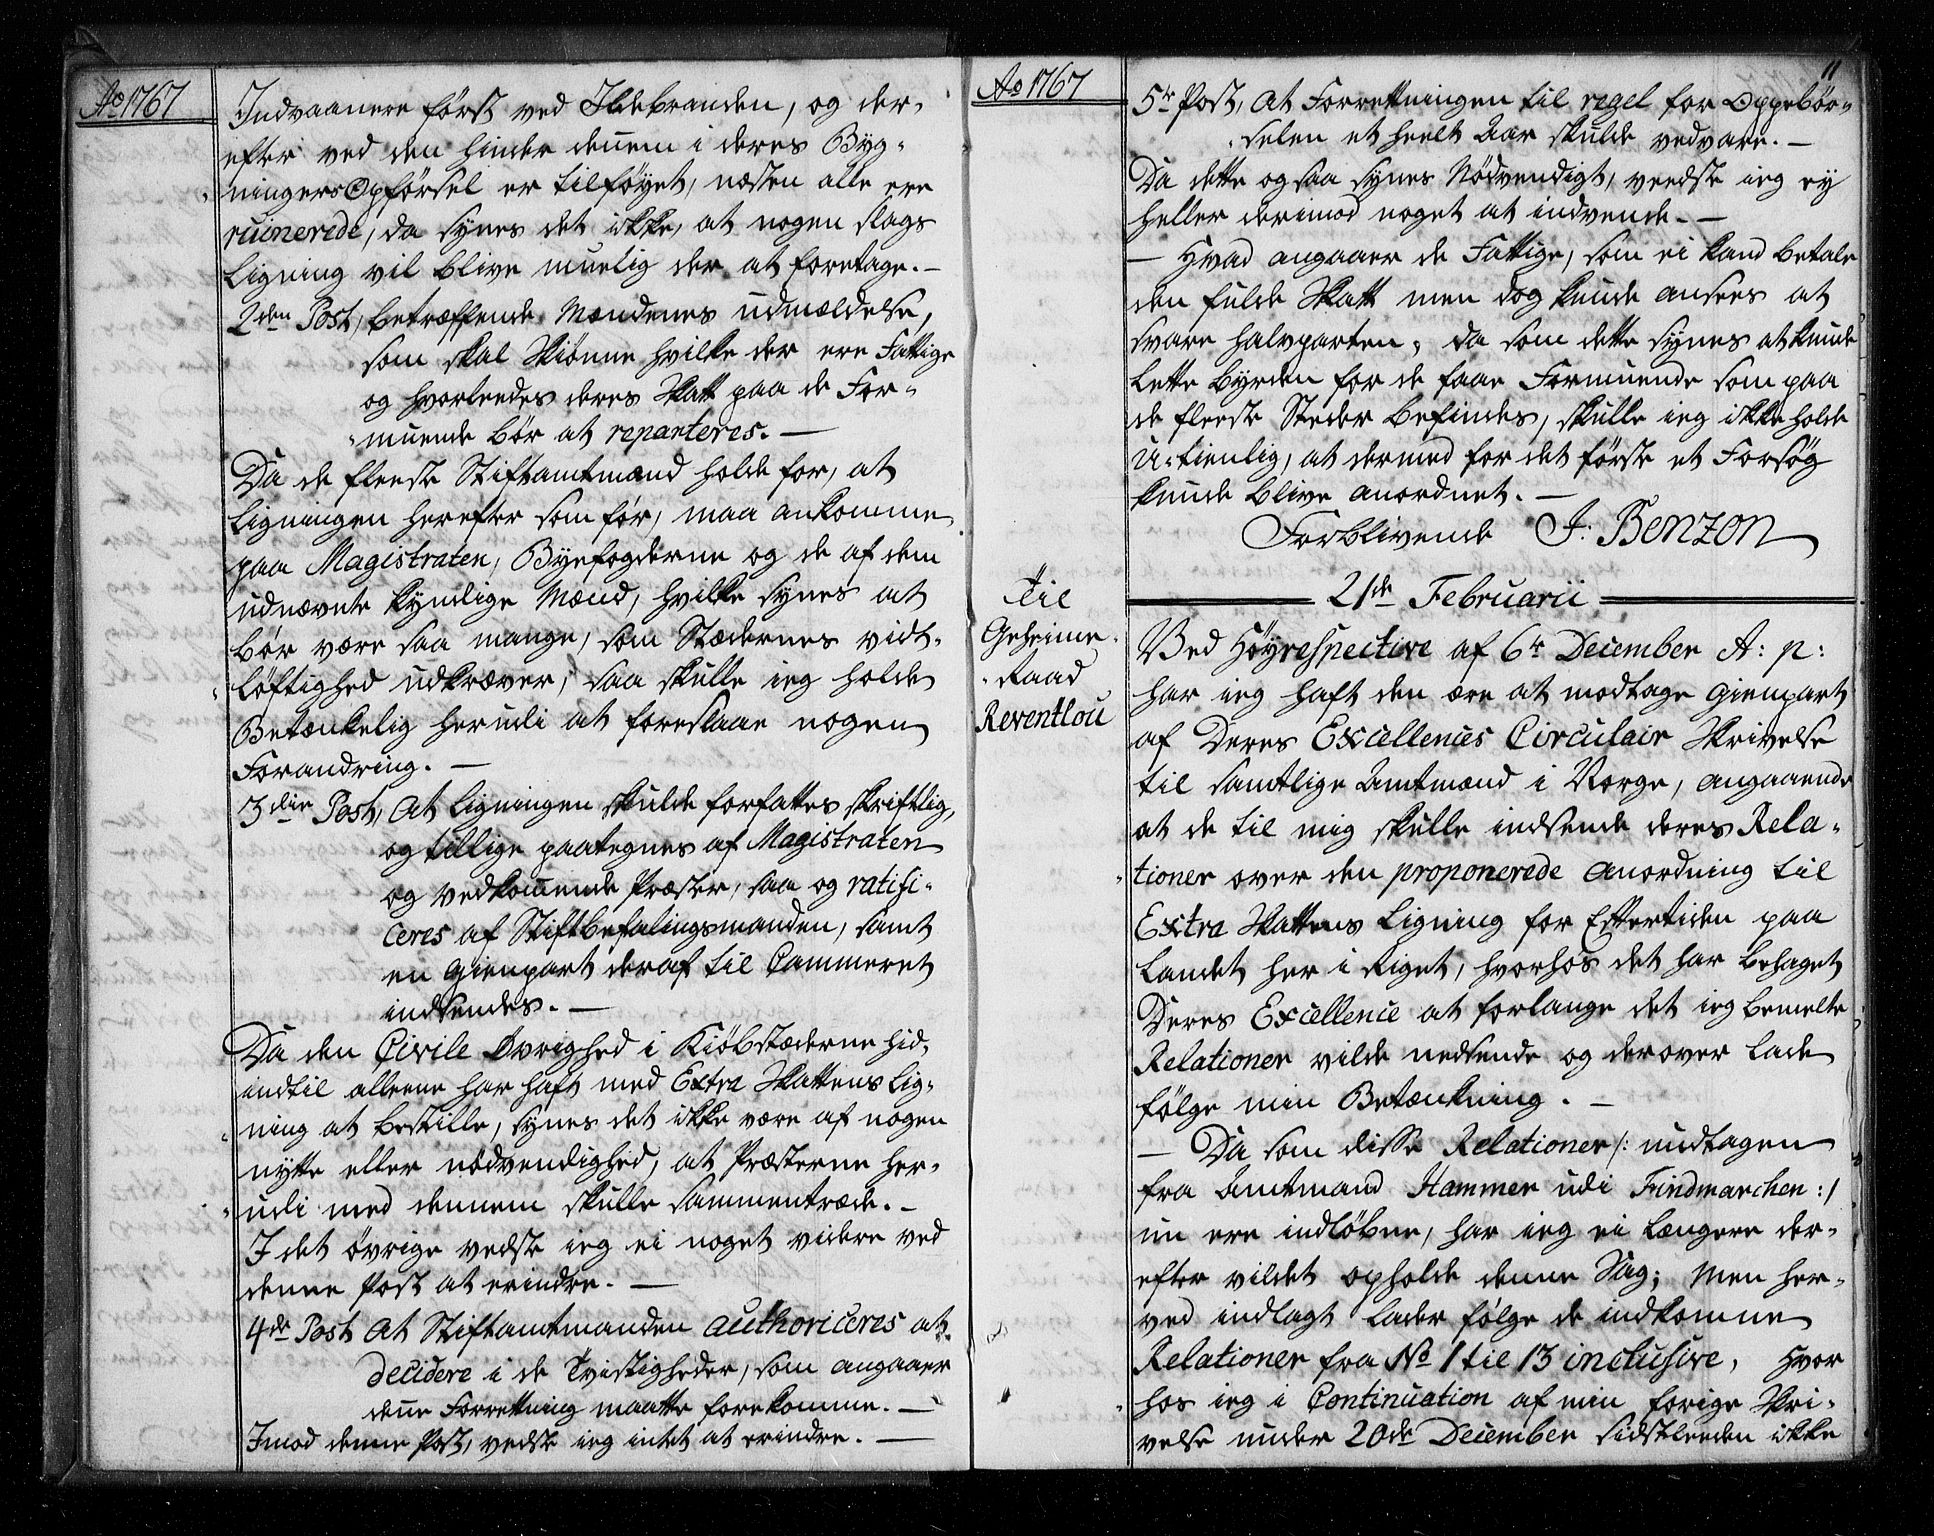 Ao 1767
Indvaanere først ved Ildebranden, og der-
efter ved den hinder dennem i deres Byg-
ningers Opførsel er tilføyet, næsten alle ere
ruinerede, da synes det ikke, at nogen slags
Ligning vil blive muelig der at foretage. -
2den Post, betræffende Mændenes udmældelse,
som skal skiønne hvilke der ere Fattige
og hvorleedes deres Skatt paa de For-
muende bør at reparteres. -
Da de fleeste Stiftamtmænd holde for, at
Ligningen herefter som før, maa ankomme
paa Magistraten, Byefogderne og de af dem
udnævnte kyndige Mænd, hvilke synes at
bør være saa mange, som Stædernes vidt-
løftighed udkræver, saa skulle ieg holde
Betænkelig herudi at foreslaae nogen
Forandring. -
3die Post, At Ligningen skulde forfattes skriftlig,
og tillige paategnes af Magistraten
og vedkommende Præster, saa og ratifi-
ceres af Stiftbefalingsmanden, samt
en Gienpart deraf til Cammeret
indsendes. -
Da den Civile Øvrighed i Kiøbstæderne hid-
indtil alleene har haft med Extra Skattens Lig-
ning at bestille, synes det ikke være af nogen
nytte eller nødvendighed, at Præsterne her-
udi med dennem skulle sammentræde. -
I det øvrige vedste ieg ei noget videre ved
denne Post at erindre. -
4de Post At Stiftamtmanden authoriceres at
decidere i de Tvistigheder, som angaaer
denne Forrettning maatte forekomme. -
Imod denne Post, vedste ieg intet at erindre. -
Ao 1767
11
5te Post, At Forrettningen til regel for Oppebør-
selen et heelt Aar skulde vedvare. -
Da dette ogsaa synes Nødvendigt, veedste ieg ey
heller derimod noget at indvende. -
- Hvad angaaer de Fattige, som ei kand betale
den fulde Skatt men dog kunde ansees at
svare halvparten, da som dette synes at kunde
lette byrden for de faae Formuende som paa
de fleeste Steder befindes, skulle ieg ikke holde
U-tienlig, at dermed for det første et Forsøg
kunde blive anordnet. -
Forblivende J: Benzon
21de Februarii
Til
Geheime-
Raad
Reventlou
Ved Høyrespective af 6te December A: p:
har ieg haft den ære at modtage Gienpart
af Deres Excellences Circulair Skrivelse
til samtlige Amtmænd i Norge, angaaende
at de til mig skulle indsende deres Rela-
tioner over den proponerede Anordning til
Extra Skattens Ligning for Eftertiden paa
Landet her i Riget, hvorhos det har behaget
Deres Excellence at forlange det ieg bemelte
Relationer vilde nedsende og derover lade
følge min Betænkning. -
- Da som disse Relationer /: undtagen
fra Amtmand Hammer udi Findmarchen :/
nu ere indløbne, har ieg ei længere der-
efter vildet opholde denne Sag; Men her-
ved indlagt lader følge de indkomne
Relationer fra No 1 til 13 inclusive, hvor
hos ieg i Continuation af min forige Skri-
velse under 20de December sidstleeden ikke